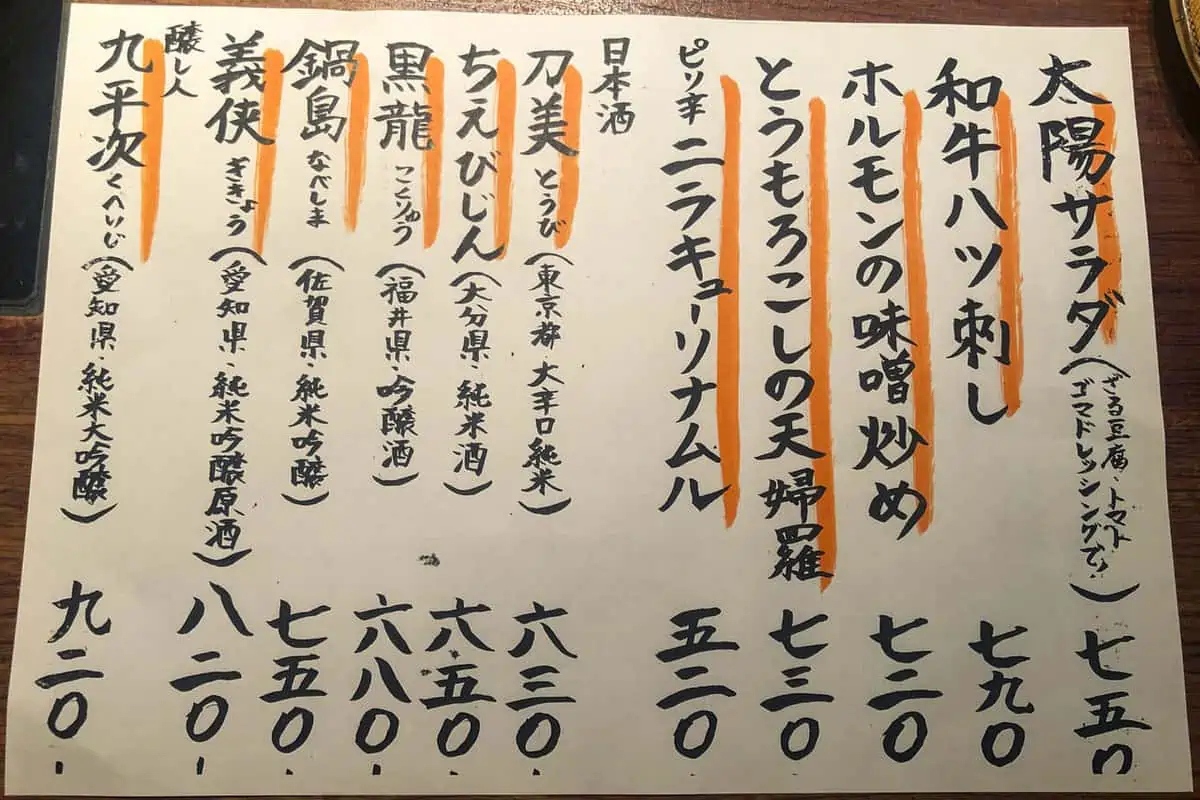 太陽サラダ(ざる豆腐・トマト
ゴマドレッシングで!)七五〇
和牛ハツ刺し 七九〇
ホルモンの味噌炒め 七二〇
とうもろこしの天婦羅 七三〇
ピリ辛 ニラキューリナムル 五二〇
日本酒
刀美 とうび(東京都・大辛口純米)六三〇
ちえびじん(大分県・純米酒)六五〇
黒龍 こくりゅう(福井県・吟醸酒)六八〇
鍋島 なべしま(佐賀県・純米吟醸)七五〇
義侠 ぎきょう(愛知県・純米吟醸原酒)八二〇
醸し人
九平次 くへいじ(愛知県・純米大吟醸)九二〇